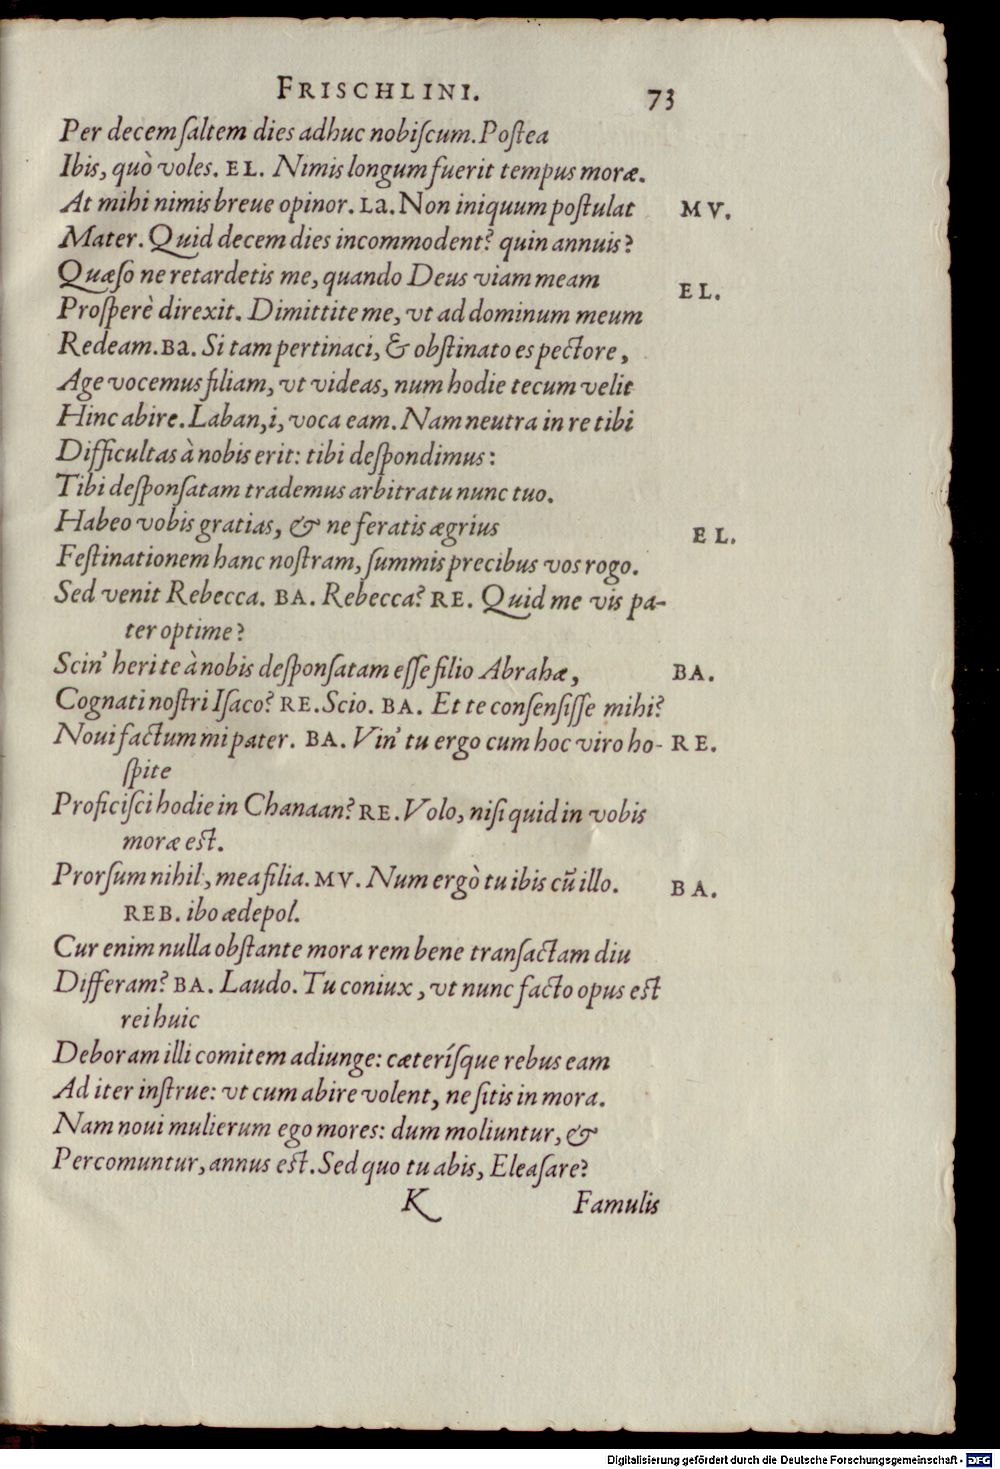 FRISCHLINI. 73
Per decem ſaltem dies adhuc nobiſcum. Poſtea
Ibis, quò voles. EL. Nimis longum fuerit tempus moræ.
At mihi nimis breue opinor. La. Non iniquum poſtulat MV.
Mater. Quid decem dies incommodent? quin annuis?
Quæſo ne retardetis me, quando Deus viam meam EL.
Proſperè direxit. Dimittite me, vt ad dominum meum
Redeam. Ba. Si tam pertinaci, & obſtinato es pectore,
Age vocemus filiam, vt videas, num hodie tecum velit
Hinc abire. Laban, i, voca eam. Nam neutra in re tibi
Difficultas à nobis erit: tibi deſpondimus:
Tibi deſponſatam trademus arbitratu nunc tuo.
Habeo vobis gratias, & ne feratis ægrius EL.
Feſtinationem hanc noſtram, ſummis precibus vos rogo.
Sed venit Rebecca. BA. Rebecca? RE. Quid me vis pa-
ter optime?
Scin' heri te à nobis deſponſatam eſſe filio Abrahæ, BA.
Cognati noſtri Iſaco? RE. Scio. BA. Et te conſenſiſſe mihi?
Noui factum mi pater. BA. Vin' tu ergo cum hoc viro ho- RE.
ſpite
Proficiſci hodie in Chanaan? RE. Volo, niſi quid in vobis
moræ eſt.
Prorſum nihil, mea filia. MV. Num ergò tu ibis cũ illo. BA.
REB. ibo ædepol.
Cur enim nulla obſtante mora rem bene tranſactam diu
Differam? BA. Laudo. Tu coniux, vt nunc facto opus eſt
rei huic
Deboram illi comitem adiunge: cæteríſque rebus eam
Ad iter inſtrue: vt cum abire volent, ne ſitis in mora.
Nam noui mulierum ego mores: dum moliuntur, &
Percomuntur, annus eſt. Sed quo tu abis, Eleaſare?
K Famulis
Digitalisierung gefördert durch die Deutsche Forschungsgemeinschaft - DFG